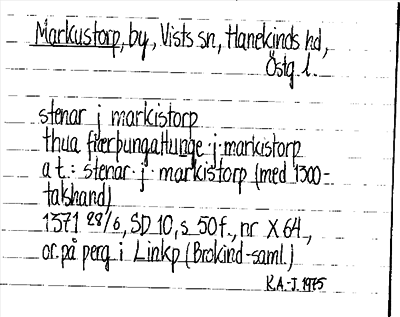 Markustorp, by, Vists sn, Hanekinds hd,
Östg. l.
stenar j markistorp
thua fiærþungatiunge · j · markistorp
a t.: stenar · j · markistorp (med 1300-
talshand)
1371 28/6, SD 10, s. 50 f., nr X 64,
or. på perg. i Linkp (Brokind-saml.)
K.A.-J. 1975